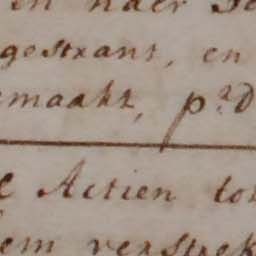 in naer
gestrant, en
emaakt, p.r d
Actien tot
em verstrek